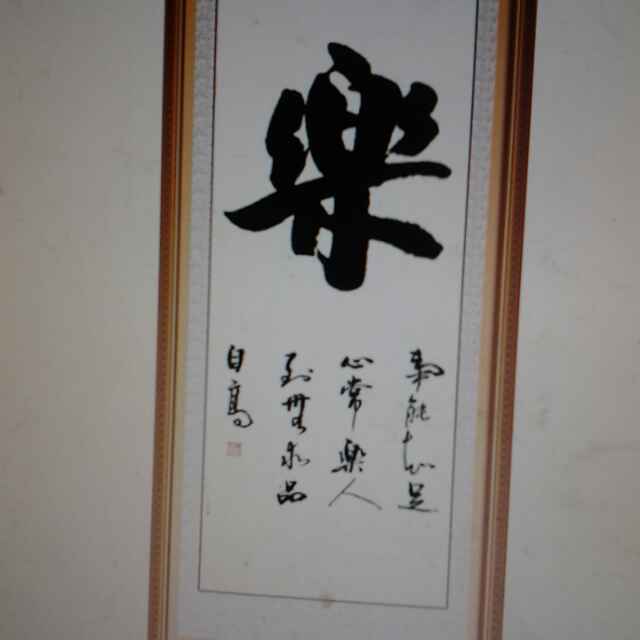 樂
事能知足
心常樂人
到無求品
自高